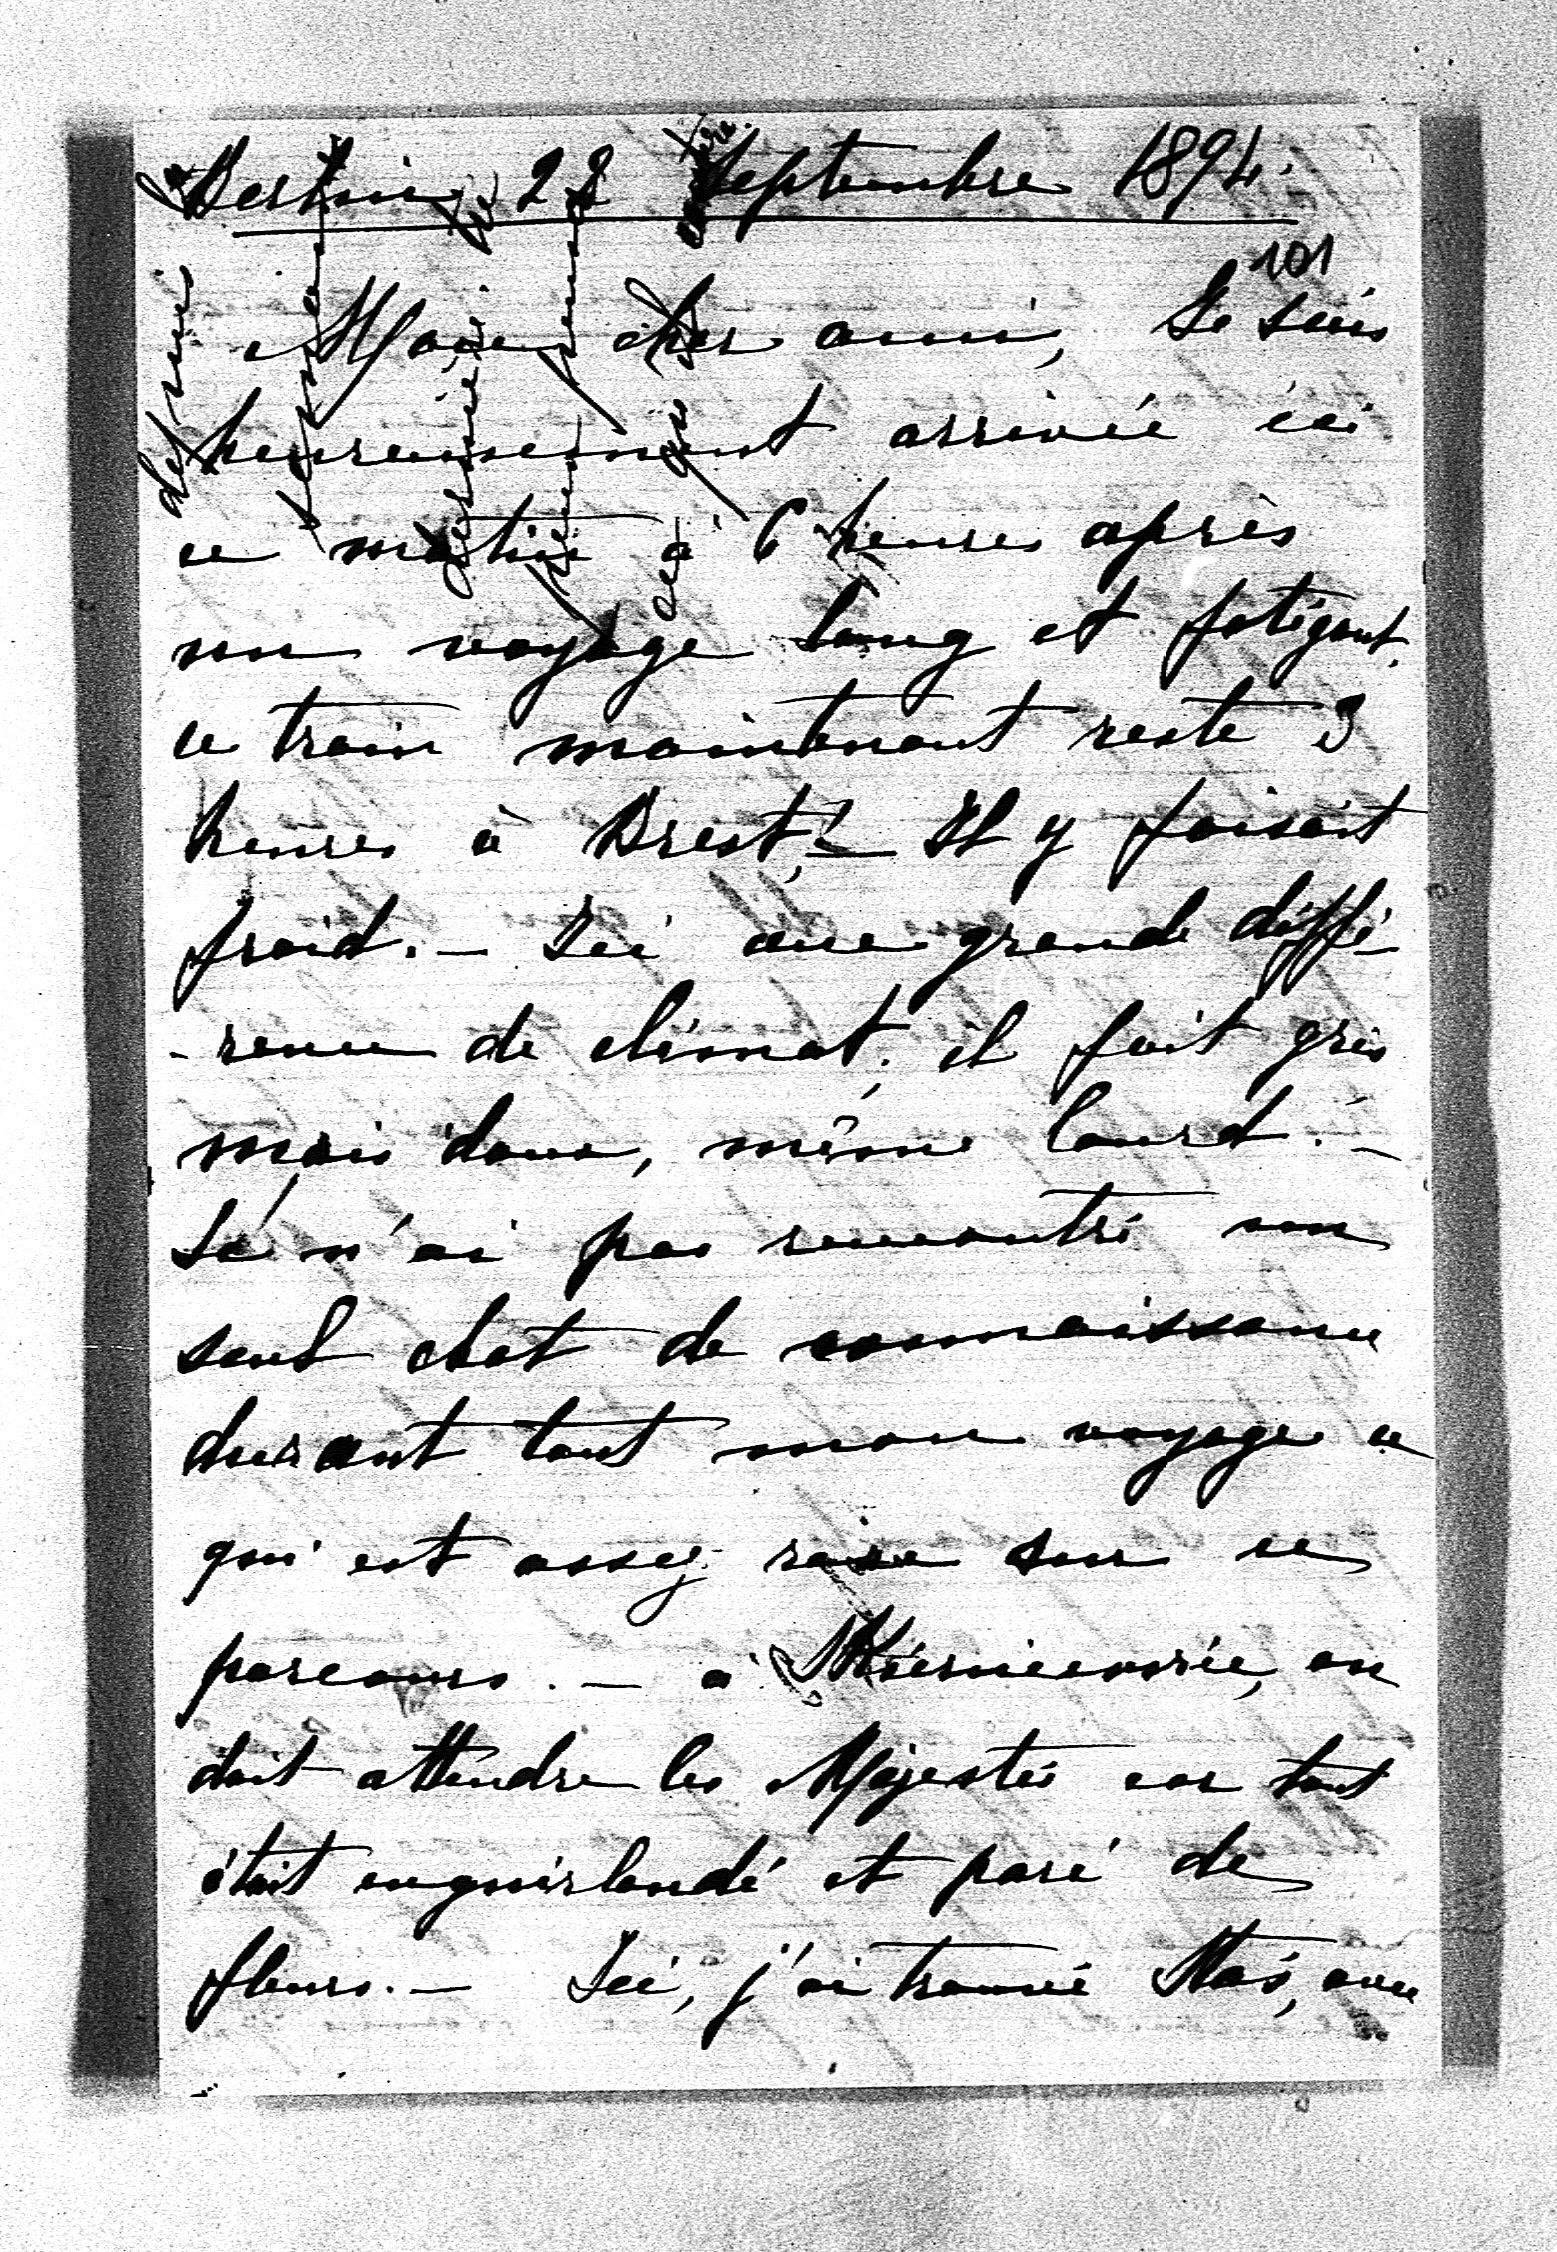 Berlin 28 Septembre 1894.
101
Mon cher ami, Je suis
heureusement arrivée ici
ce matin à 6 heures après
un voyage long et fatigant.
Ce train maintenant reste 3
heures à Brest! — Il y faisait
froid. — Ici une grande diffé
-rence de climat; il fait gris
mais doux, même lourd. —
Je n'ai pas rencontré un
seul chat de connaissance
durant tout mon voyage ce
qui est assez rare sur ce
parcours. — à Skierniewice, on
doit attendre les Majestés car tout
était enguirlandé et paré de
fleurs. — Ici, j'ai trouvé Stas, avec